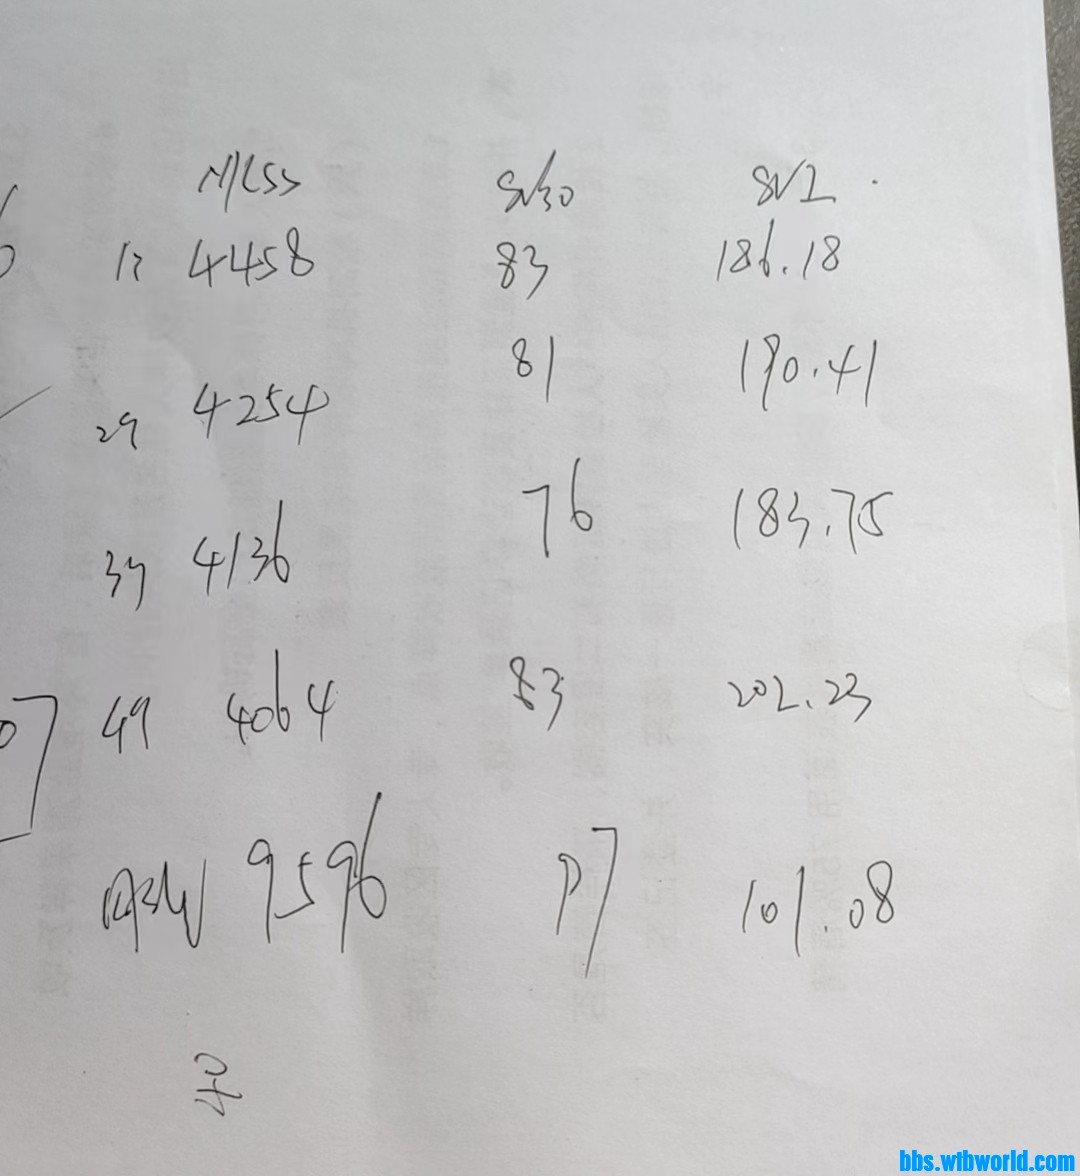 MLSS SV30 SVI
4458 83 186.18
29 4254 81 190.41
39 4136 76 183.75
49 4064 83 202.23
9596 97 101.08
bbs.wtbworld.com